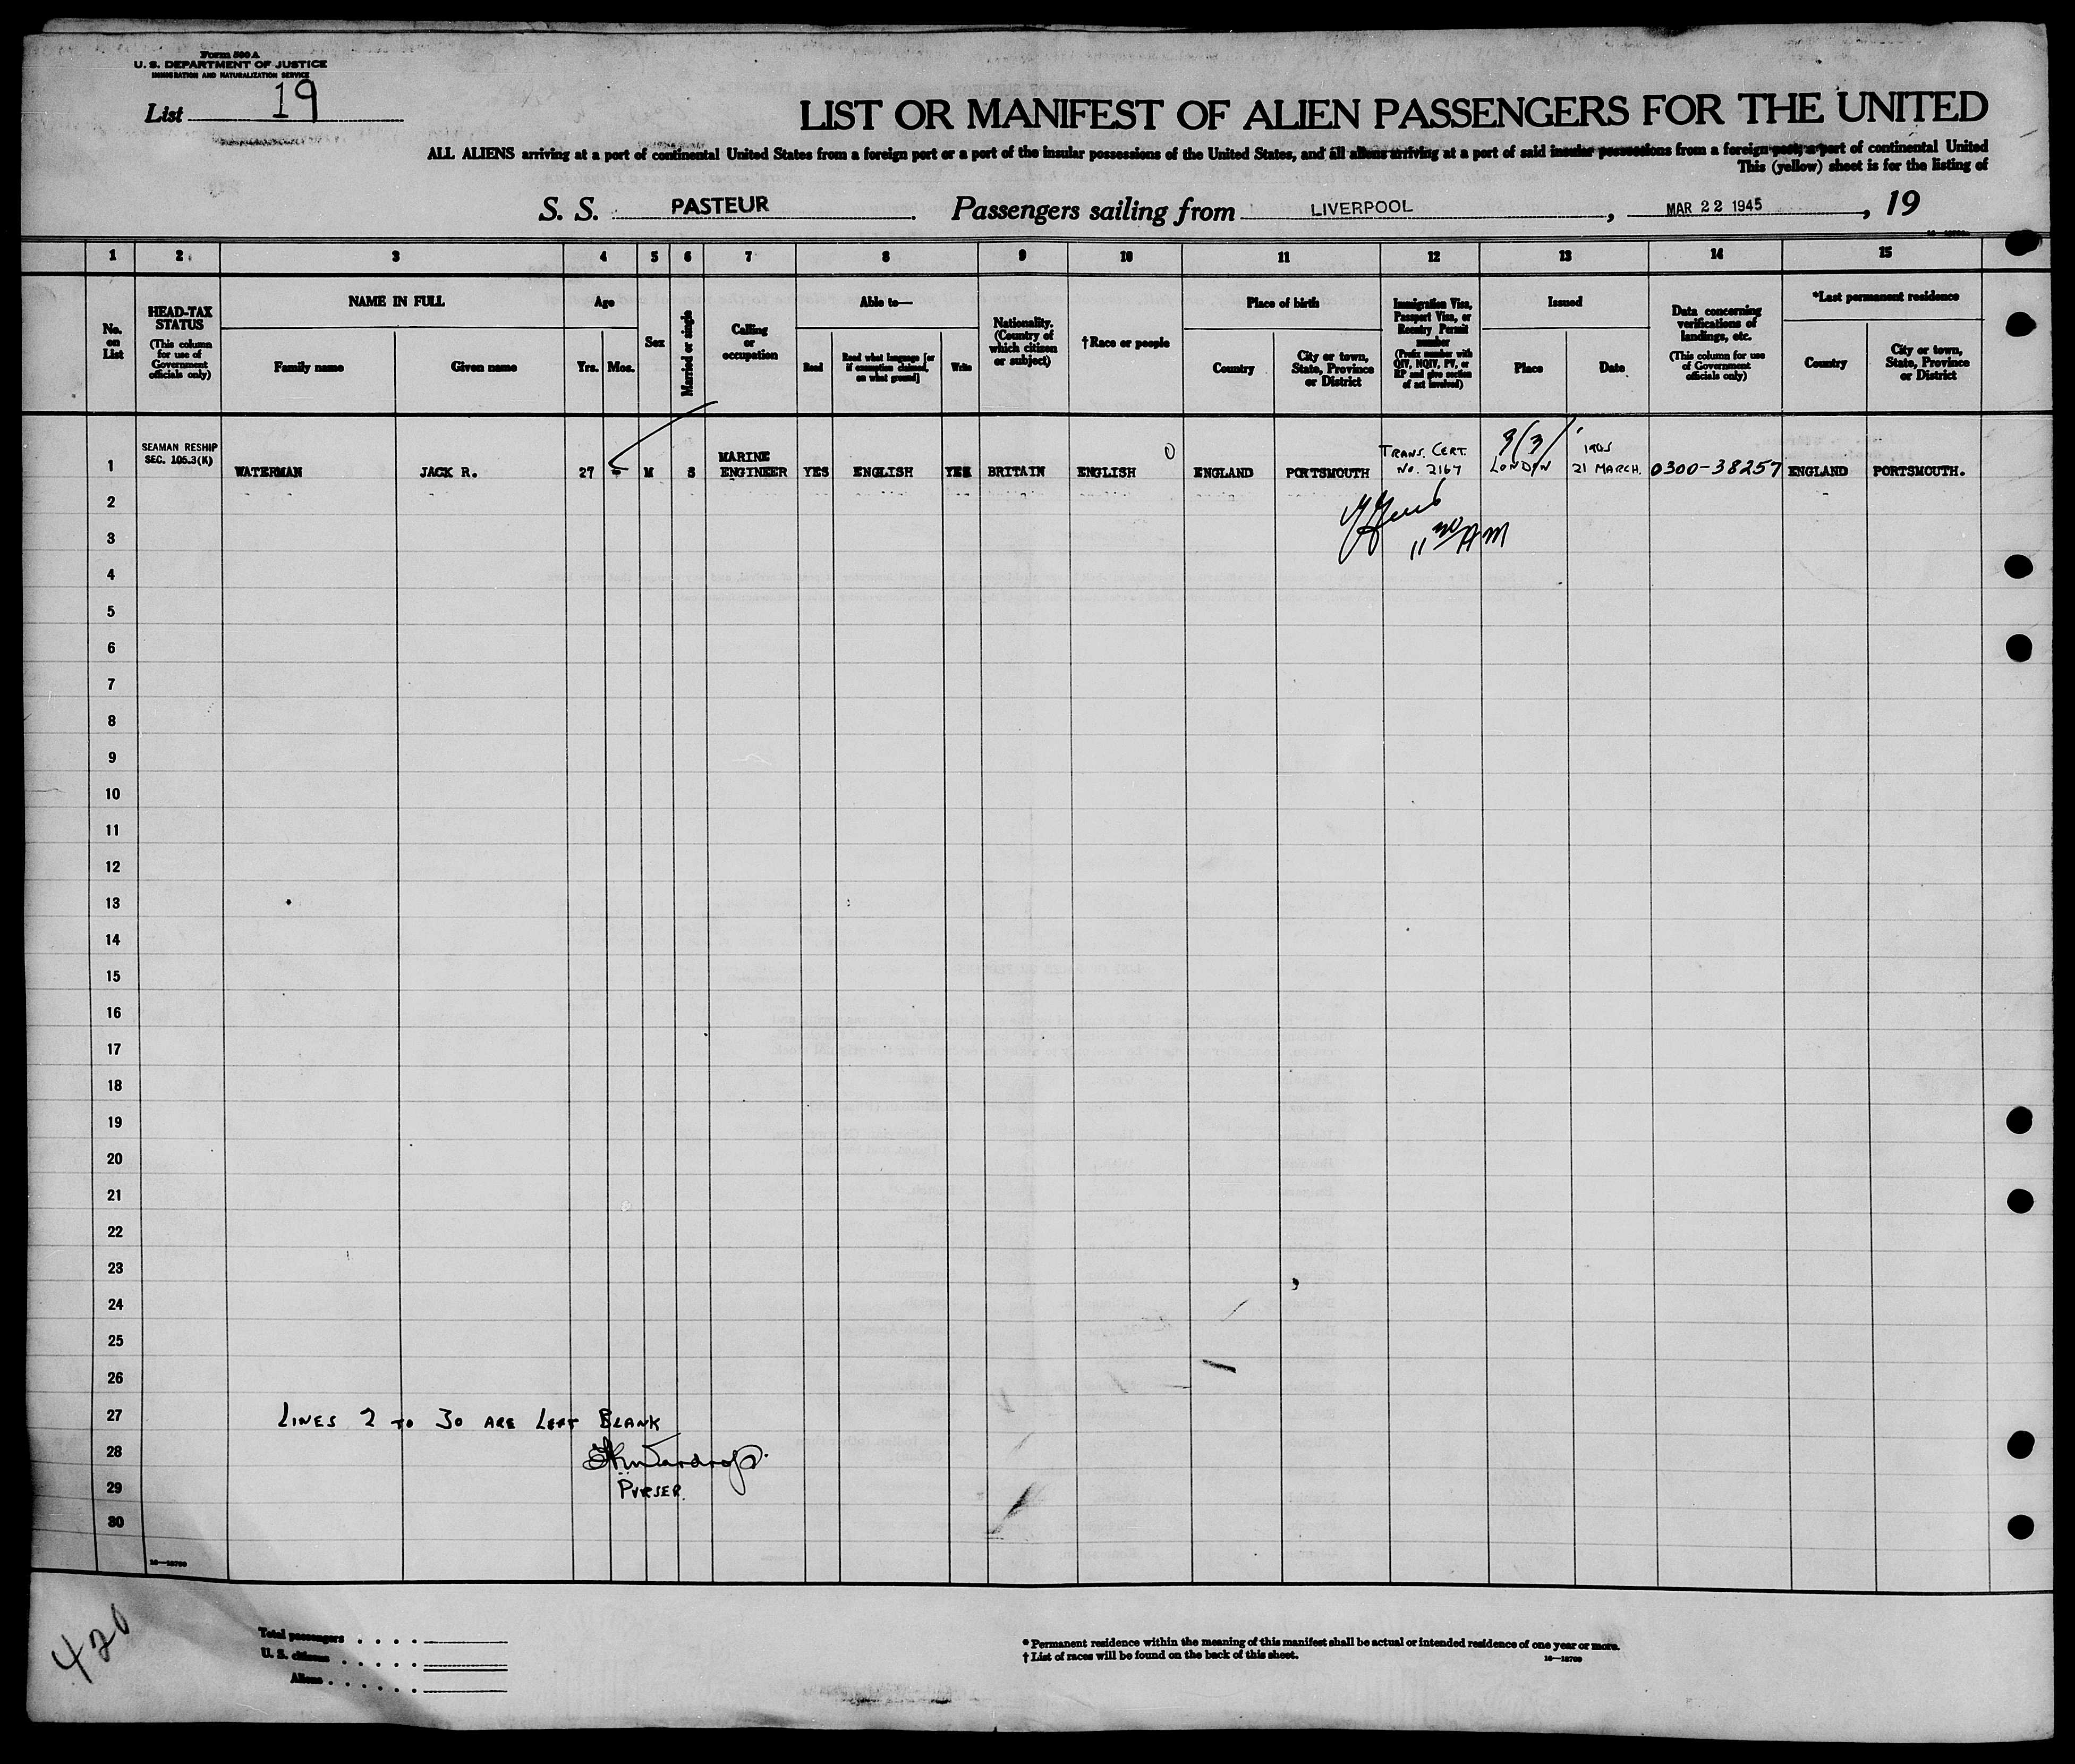 Form 500 A
U. S. DEPARTMENT OF JUSTICE
IMMIGRATION AND NATURALIZATION SERVICE
List 19
LIST OR MANIFEST OF ALIEN PASSENGERS FOR THE UNITED
ALL ALIENS arriving at a port of continental United States from a foreign port or a port of the insular possessions of the United States, and all aliens arriving at a port of said insular possessions from a foreign port, a port of continental United
This (yellow) sheet is for the listing of
S. S. PASTEUR Passengers sailing from LIVERPOOL, MAR 22 1945, 19
1 2 3 4 5 6 7 8 9 10 11 12 13 14 15
No. on List
HEAD-TAX STATUS (This column for use of Government officials only)
NAME IN FULL
Family name
Given name
Age
Yrs. Mos.
Sex
Married or single
Calling or occupation
Able to—
Read
Read what language [or if exemption claimed, on what ground]
Write
Nationality. (Country of which citizen or subject)
†Race or people
Place of birth
Country
City or town, State, Province or District
Immigration Visa, Passport Visa, or Reentry Permit number (Prefix number with QIV, NQIV, PV, or RP and give section of act involved)
Issued
Place
Date
Data concerning verifications of landings, etc. (This column for use of Government officials only)
*Last permanent residence
Country
City or town, State, Province or District
1 SEAMAN RESHIP SEC. 105.3(K) WATERMAN JACK R. 27 M S MARINE ENGINEER YES ENGLISH YES BRITAIN ENGLISH ENGLAND PORTSMOUTH TRANS. CERT. No. 2167 LONDON 21 MARCH. 0300-38257 ENGLAND PORTSMOUTH.
2
3 11 30 AM
4
5
6
7
8
9
10
11
12
13
14
15
16
17
18
19
20
21
22
23
24
25
26
27 LINES 2 TO 30 ARE LEFT BLANK
28
29 PURSER.
30
16—18700
420
Total passengers
U. S. citizens
Aliens
* Permanent residence within the meaning of this manifest shall be actual or intended residence of one year or more.
† List of races will be found on the back of this sheet.
16—18700